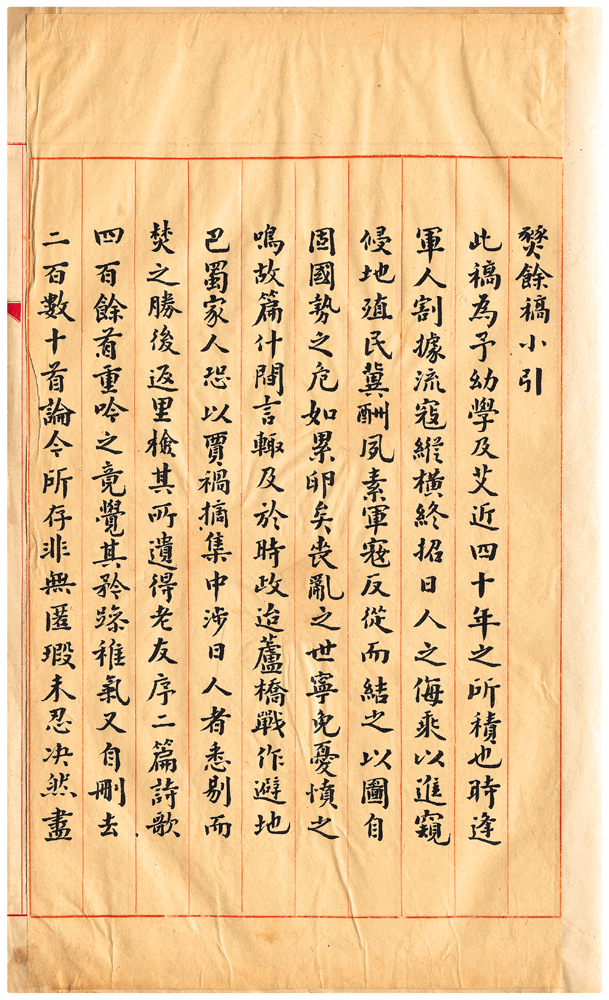 燹餘稿小引
此稿為予幼學及艾近四十年之所積也時逢
軍人割據流寇縱橫終招日人之侮乘以進窺
侵地殖民冀酬夙素軍寇反從而結之以圖自
固國勢之危如累卵矣喪亂之世寧免憂憤之
鳴故篇什間言輙及於時政迨蘆橋戰作避地
巴蜀家人恐以賈禍摘集中涉日人者悉剔而
焚之勝後返里檢其所遺得老友序二篇詩歌
四百餘首重吟之竟覺其矜躁稚氣又自刪去
二百數十首論今所存非無匿瑕未忍決然盡